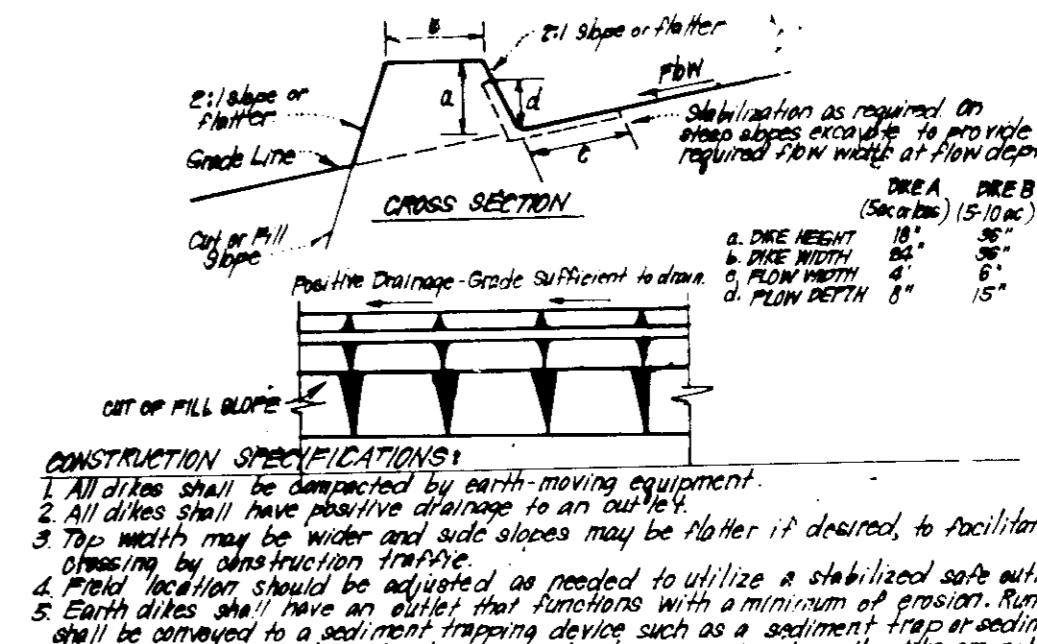 b
2:1 Slope or flatter
Flow
2:1 slope or
flatter
a
d
Stabilization as required. On
steep slopes excavate to provide
required flow width at flow dep
Grade Line
c
CROSS SECTION
Cut or Fill
Slope
DIKE A DIKE B
(5ac or less) (5-10 ac)
a. DIKE HEIGHT 18" 36"
b. DIKE WIDTH 24" 36"
c. FLOW WIDTH 4' 6'
d. FLOW DEPTH 8" 15"
Positive Drainage - Grade Sufficient to drain.
CUT OF FILL SLOPE
CONSTRUCTION SPECIFICATIONS:
1. All dikes shall be compacted by earth-moving equipment.
2. All dikes shall have positive drainage to an outlet.
3. Top width may be wider and side slopes may be flatter if desired, to facilitat
crossing by construction traffic.
4. Field location should be adjusted as needed to utilize a stabilized safe out
5. Earth dikes shall have an outlet that functions with a minimum of erosion. Run
shall be conveyed to a sediment trapping device such as a sediment trap or sedim